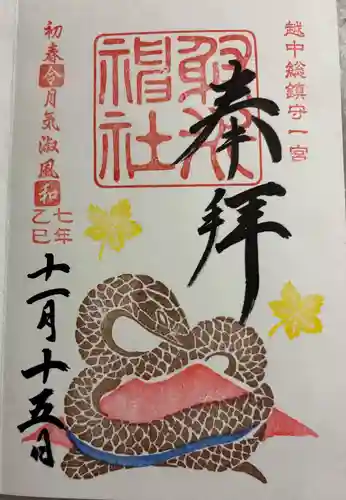 越中総鎮守一宮
射水神社
奉拝
初春令月気淑風和
七年
乙巳
十一月十五日